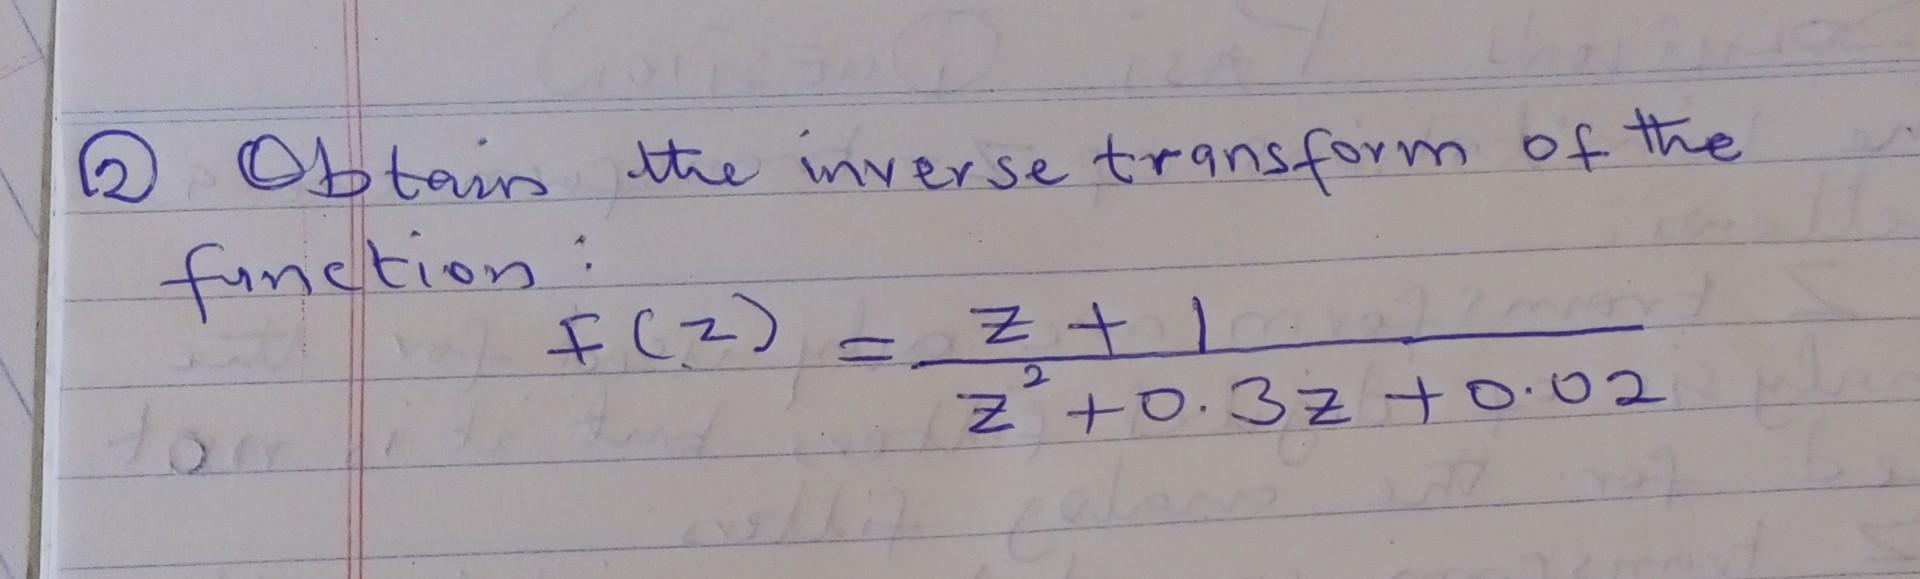 ② Obtain the inverse transform of the
function:
F(z) = z + 1
z² + 0.3z + 0.02